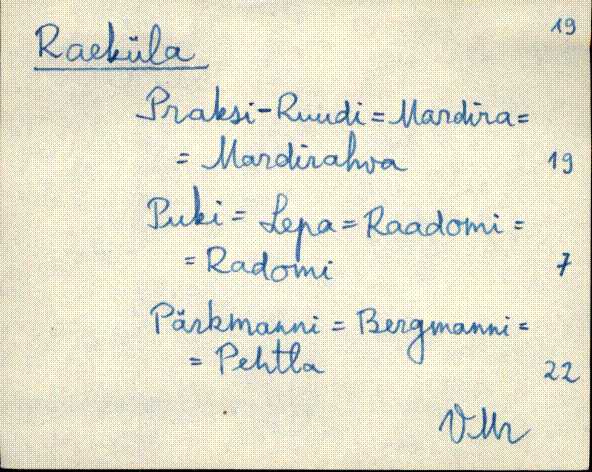 19
Raeküla
Praksi-Ruudi = Mardira =
= Mardirahva 19
Puki = Lepa = Raadomi =
= Radomi 7
Pärkmanni = Bergmanni =
= Pehtla 22